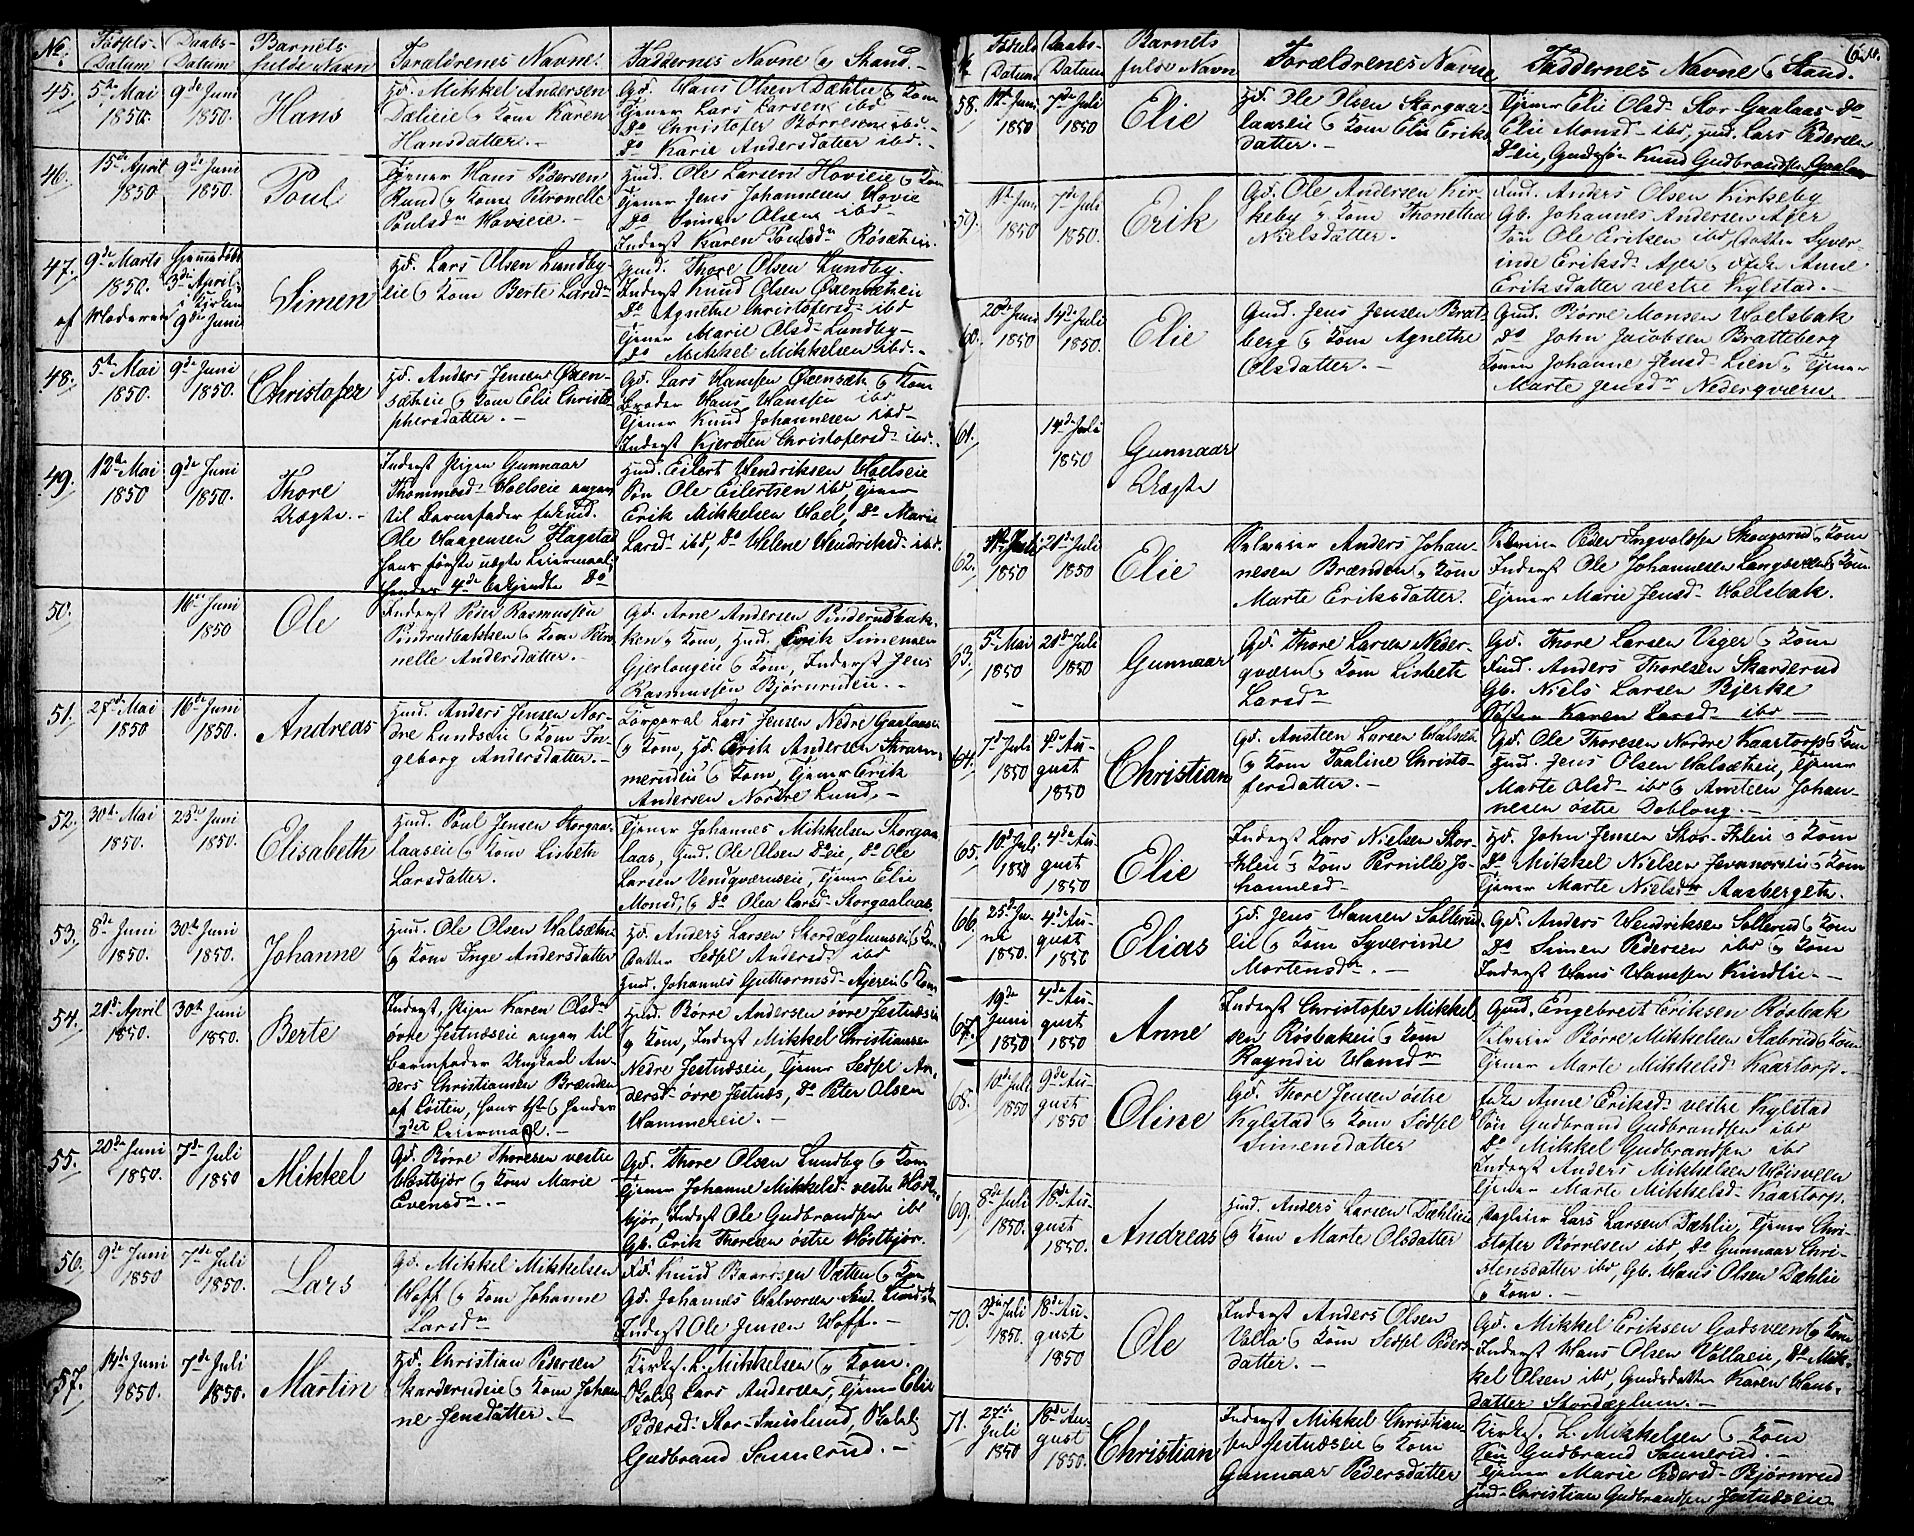 No. Fødsels- Daabs- Barnets Forældrenes Navne Faddernes Navne & Stand.
Datum Datum fulde Navn
45. 5te Mai 1850. 9de Juni 1850. Hans
Hd. Mikkel Andersen
Dælieie & Kone Karen
Hansdatter. -
Gd. Hans Olsen Dæhlie & Kone
Tjener Lars Larsen ibd
Do Christofer Børresen ibd. -
Do Karie Andersdatter ibd. -
46. 15de April 1850. 9de Juni 1850. Poul
Tjener Hans Pedersen
Rund & Kone Petronelle
Poulsdr Hovieie. -
Hmd. Ole Larsen Hovieie & Kone
Tjener Jens Johannesen Hovie
Do Simen Olsen ibd -
Inderst Karen Poulsdr
47. 9de Marts 1850. Hjemmedøbt 3die April, i Kirken 9de Juni
af Moderen
Simen
Hd. Lars Olsen Lundby-
eie & Kone Berte Larsdr
Gmd. Thore Olsen Lundby.
Inderst Knud Olsen
Do Agnethe Christofersd- ibd
Tjener Marie Olsd- Lundby-
Do Mikkel Mikkelsen ibd. -
48. 5te Mai 1850. 9de Juni 1850. Christofer
Hd. Anders Jensen Øxen-
sætheie & Kone Elie Christo-
phersdatter. -
Gd. Lars Hansen Øxensæth & Kone
Broder Hans Hansen ibd
Tjener Knud Johannesen ibd -
Inderst Kjersten Christofersd- ibd.
49. 12te Mai 1850 9de Juni 1850. Thore Uægte. -
Inderst Pigen Gunnaar
Thommesd- Hoelseie angav
til Barnefader Enkmd.
Ole Haagensen Hagstad
hans første uægte Leiermaal,
hendes 4de bekjendte Do
Hmd. Eilert Hendriksen Hoelseie
Søn Ole Eilertsen ibd, Tjener
Erik Mikkelsen Hoel, Do Marie
Larsd- ibd, Do Helene Hendriksd- ibd.
50. 16de Juni 1850 Ole
Inderst Peder Rasmussen
Pinderudbakken & Kone Petro-
nelle Andersdatter. -
Gd. Arne Andersen Pinderudbak-
ken & Kone, Hmd. Erik Simensen
Gjerlougeie & Kone, Inderst Jens
Rasmussen Bjørnrudeie. -
51. 27de Mai 1850 16de Juni 1850. Andreas
Hmd. Anders Jensen Nor-
dre Lundseie & Kone In-
geborg Andersdatter. -
Corporal Lars Jensen Nedre Gaalaas
& Kone, Hd. Erik Andersen Stram-
merudeie & Kone, Tjener Erik
Andersen Nordre Lund. -
52. 30te Mai 1850. 23de Juni 1850. Elisabeth
Hmd. Poul Jensen Storgaa-
laaseie & Kone Lisbeth
Larsdatter.
Tjener Johannes Mikkelsen Storgaa-
laas, Hmd. Ole Olsen Doeie, Do Ole
Larsen Vendqværnseie, Tjener Elie
Monsd, & Do Olea Larsd- Storgaalaas.
53. 8de Juni 1850. 30te Juni 1850. Johanne
Hmd. Ole Olsen Halsæth-
& Kone Inge Andersdatter
Hd. Anders Larsen Stordæglumseie & Kone
Datter Sedsel Andersd- ibd
Hmd. Johannes Guthormsd- Ajereie & Kone
54. 21de April 1850. 30te Juni 1850. Berte
Inderst Pigen Karen Olsdr
øvre Jestnæseie angav til
Barnefader Ungkarl An-
ders Christiansen Brænden
af Løiten, hans 1ste & hendes
3det Leiermaal. -
Hmd. Børre Andersen øvre Jestnæseie
& Kone, Inderst Mikkel Christiansen
Nedre Jestnæseie, Tjener Sedsel An-
dersd- øvre Jestnæs, Do Peter Olsen
Hammereie. -
55. 20de Juni 1850. 7de Juli 1850 Mikkel
Gd. Børre Thoresen vestre
Hostbjør & Kone Marie
Evensdr. -
Gd. Thore Olsen Lundby & Kone
Tjener Johanne Mikkelsd- vestre Host-
bjør, Inderst Ole Gudbrandsen ibd
Gb. Erik Thoresen østre Hostbjør.
56. 9de Juni 1850 7de Juli 1850. Lars
Gd. Mikkel Mikkelsen
Hoff & Kone Johanne
Larsdr
Fd. Knud Baardsen Vætten & Kone
Gd. Johannes Halvorsen
Inderst Ole Jensen Hoff. -
57. 14de Juni 1850. 7de Juli 1850. Martin
Hd. Christian Pedersen
Skarderudeie & Kone Johan-
ne Jensdatter. -
Kirkes. L. Mikkelsen & Kone.
Lars Andersen, Tjener Elie
Pedersd- Stor-
Gudbrand Sannerud. -
Fødsels Daabs- Barnets Forældrenes Navne Faddernes Navne & Stand.
Datum Datum fulde Navn
58. 1ste Juni 1850 7de Juli 1850 Elie
Hd. Ole Olsen Storgaa-
laaseie & Kone Elie Eriks-
datter. -
Tjener Elie Olsd- Stor-Gaalaas Do
Elie Monsd- ibd, Hmd. Lars Pedersen
Doeie, Gudbrandsen Gaalaas
59. 1ste Juni 1850 7de Juli 1850. Erik
Gd. Ole Andersen Kir-
keby & Kone Thonethea
Nielsdatter. -
Anders Olsen Kirkeby
Gb. Johannes Andersen Ajer
Søn Ole Eriksen ibd, Datter Syver-
inde Eriksd- Ajer & Enke Anne
Eriksdatter vestre Kylstad. -
60. 20de Juni 1850 14de Juli 1850. Elie
Gmd. Jens Jensen Bratt-
berg & Kone Agnethe
Olsdatter. -
Gmd. Børre Monsen Hoelsbak
Do John Jacobsen Bratteberg
Konen Johanne Jensd- Lien & Tjener
Marte Jensdr Nedreqværn.
61. 14de Juli 1850 Gunnaar Uægte
62. 21de Juli 1850 Elie
Selveier Anders Johan-
nesen Brænden & Kone
Marte Eriksdatter.
Selveier Peder Ingvoldsen Skougsrud & Kone
Inderst Ole Johannesen & Kone
Tjener Marie Jensd- Hoelsbak.
63. 5te Mai 1850 21de Juli 1850 Gunnaar
Gd. Thore Larsen Neder-
qværn & Kone Lisbeth
Larsdr
Gd. Thore Larsen Viger & Kone
Anders Thoresen Skarderud
Gb. Niels Larsen Bjerke
Søster Karen Larsd- ibd -
64. 7de Juli 1850 4de August 1850 Christian
Gd. Austeen Larsen Halsæth
& Kone Taaline Christo-
fersdatter. -
Gd. Ole Thoresen Nordre Kaartorp & Kone
Hmd. Jens Olsen Halsætheie, Tjener
Marte Olsd- ibd & Austeen Johan-
nesen østre Doblong. -
65. 10de Juli 1850 4de August 1850 Elie
Inderst Lars Nielsen Stor-
Ihleie & Kone Pernille Jo-
hannesd-
Hd. John Jensen Stor-Ihleie & Kone
Do Mikkel Nielsen & Kone
Tjener Marte Nielsdr Aasbergeth.
66. 25de Juni 1850. 4de August 1850. Elias
Hd. Jens Hansen Sollerud-
eie & Kone Syverinde
Mortensdr. -
Gd. Anders Hendriksen Sollerud & Kone
Do Simen Pedersen ibd & Kone
Inderst Hans Hansen Kindlie. -
67. 19de Juni 1850 4de August 1850 Anne
Inderst Christofer Mikkel-
sen Røsbakeie & Kone
Rangdie Hansdr
Gmd. Engebret Eriksen Røsbak
Selveier Børre Mikkelsen Stabrud & Kone
Tjener Marte Mikkelsd- Kaartorp. -
68. 10de Juli 1850 9de August 1850 Oline
Gd. Thore Jensen østre
Kylstad & Kone Sedsel
Simensdatter
Enke Anne Eriksd- vestre Kylstad
Søn Gudbrand Gudbrandsen ibd
Do Mikkel Gudbrandsen ibd
Inderst Anders Mikkelsen Hoisveen
Tjener Marte Mikkelsd- Kaartorp.
69. 8de Juli 1850. 18de August 1850. Andreas
Hmd. Anders Larsen Dæhlieie
& Kone Marte Olsdatter
Lars Larsen Dæhlie, Tjener Chri-
stofer Børresen ibd, Do Gunnaar Chri-
stensdatter ibd, Gb. Hans Olsen Dæhlie
& Kone. -
70. 3die Juli 1850. 18de August 1850 Ole
Inderst Anders Olsen
Volla & Kone Sedsel Peders-
datter. -
Gd. Mikkel Eriksen Godsveen & Kone
Inderst Hans Olsen Vollaeie, Do Mik-
kel Olsen ibd, Gmdsdatter Karen Hans-
datter Stordæglum. -
71. 27de Juli 1850 18de August 1850. Christian
Inderst Mikkel Christian-
sen Jestnæseie & Kone
Gunnaar Pedersdatter
Kirkes. L. Mikkelsen & Kone
Søn Gudbrand Sannerud. -
Tjener Marie Pedersd- Bjørnrud
Hmd- Christian Gudbrandsen Jestnæseie